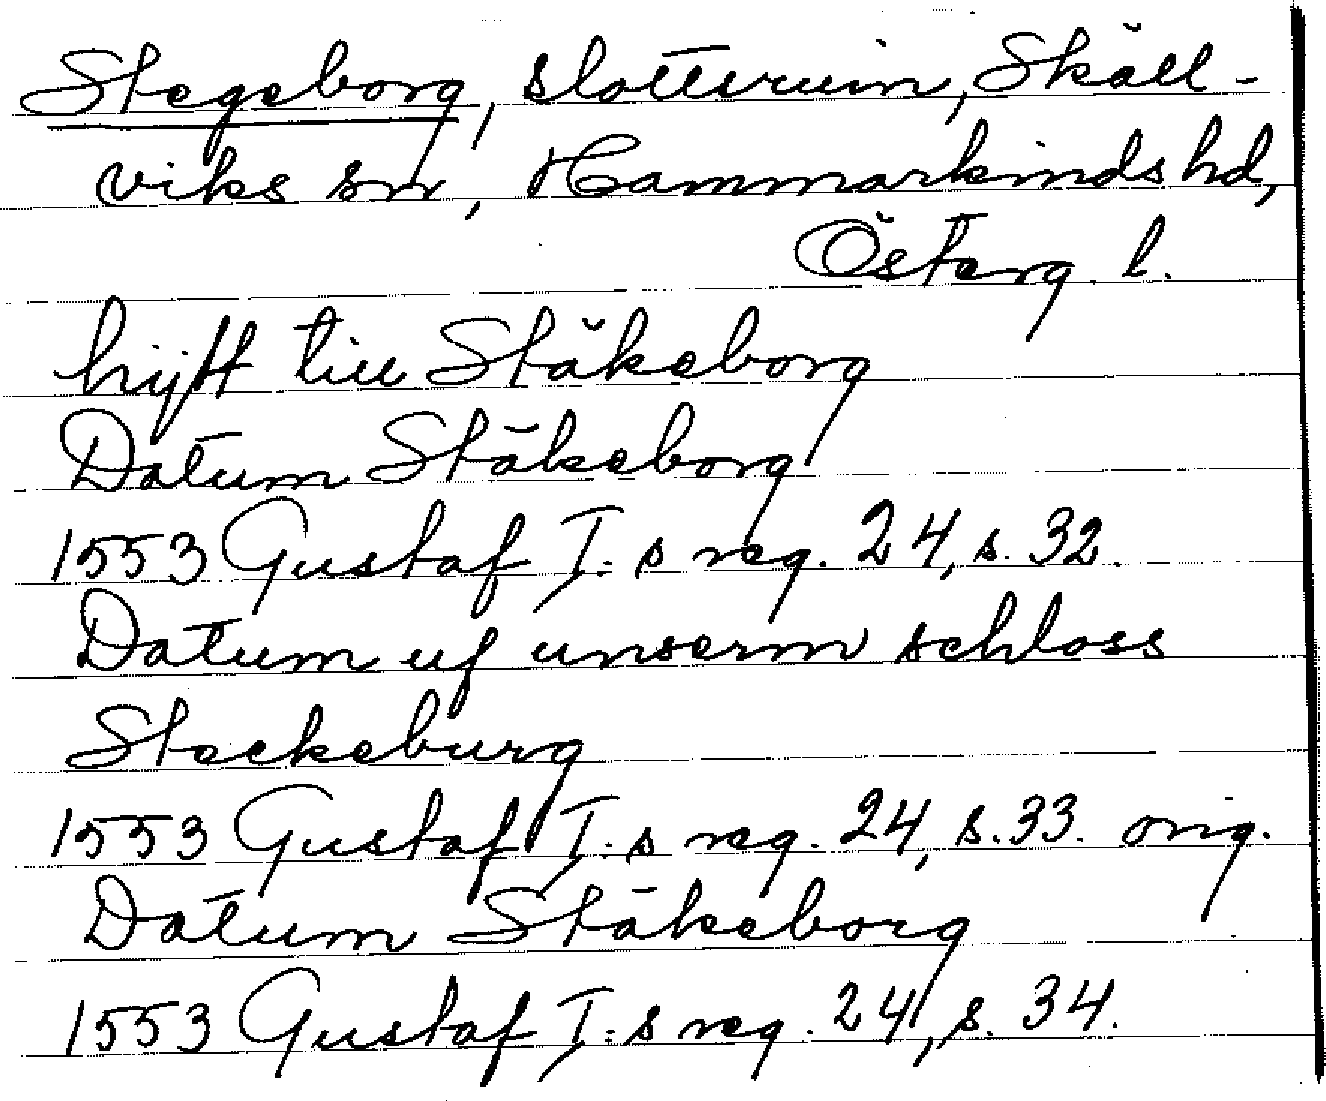 Stegeborg, slottsruin, Skäll-
viks sn, Hammarkinds hd,
Österg. l.
hijtt till Stäkeborg
Datum Stäkeborg
1553 Gustaf I:s reg. 24, s. 32.
Datum uf unserm schloss
Steckeburg
1553 Gustaf I:s reg. 24, s. 33. orig.
Datum Stäkeborg
1553 Gustaf I:s reg. 24, s. 34.